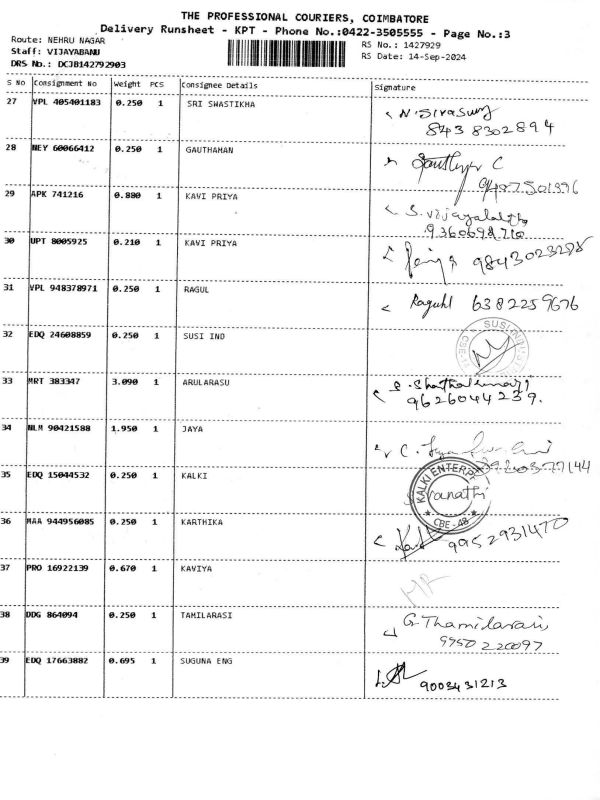 THE PROFESSIONAL COURIERS, COIMBATORE
Delivery Runsheet - KPT - Phone No.:0422-3505555 - Page No.:3
Route: NEHRU NAGAR
Staff: VIJAYABANU
DRS No.: DCJB142792903
RS No.: 1427929
RS Date: 14-Sep-2024
S No Consignment No Weight PCS Consignee Details Signature
27 VPL 405401183 0.250 1 SRI SWASTIKHA
843 8302894
28 NEY 60066412 0.250 1 GAUTHAMAN
C
29 APK 741216 0.880 1 KAVI PRIYA
S. Vijayalakshmi
9360698710
30 UPT 8005925 0.210 1 KAVI PRIYA
9843023288
31 VPL 948378971 0.250 1 RAGUL
Raguhl 6382259676
32 EDQ 24608859 0.250 1 SUSI IND
SUSI
33 MRT 383347 3.090 1 ARULARASU
9626044239.
34 NLM 90421588 1.950 1 JAYA
C.
35 EDQ 15044532 0.250 1 KALKI
KALKI ENTERP
CBE-48
36 MAA 944956085 0.250 1 KARTHIKA
9952931470
37 PRO 16922139 0.670 1 KAVIYA
38 DDG 864094 0.250 1 TAMILARASI
G. Thamilarasi,
9950220097
39 EDQ 17663882 0.695 1 SUGUNA ENG
9003431213